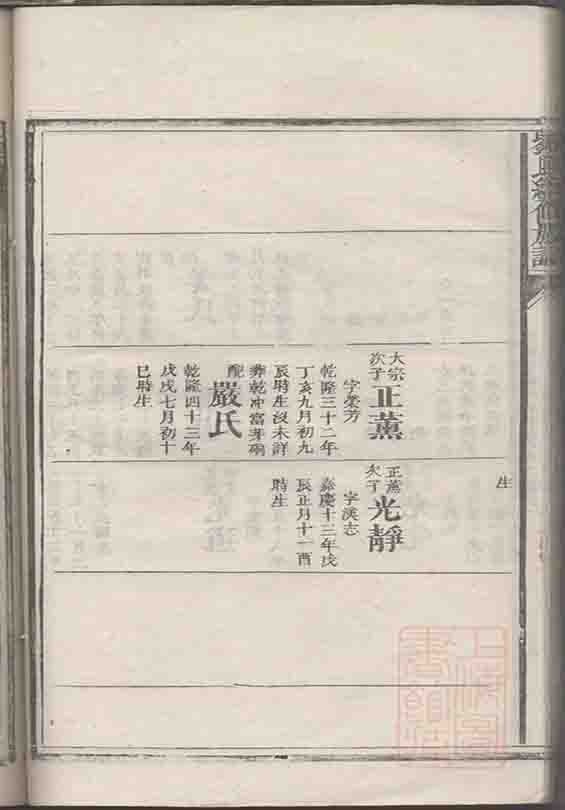 氏續修族譜
生
大宗
次子
正薰
字榮芳
乾隆三十二年
丁亥九月初九
辰時生沒未詳
葬乾冲富芽硐
配
嚴氏
乾隆四十三年
戊戌七月初十
巳時生
正薰
次子
光靜
字漢志
嘉慶十三年戊
辰正月十一酉
時生
上海圖
書館藏